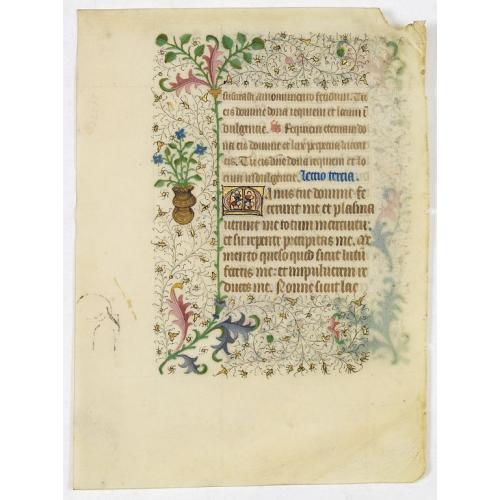 suscitasti a monumento fetidum. Tu
eis domine dona requiem et locum i
dulgentie. Requiem eternam do
na eis domine et lux perpetua luceat
eis. Tu eis dñe dona requiem et lo
cum indulgentie. Lectio tercia.
Manus tue domine fe
cerunt me et plasma
verunt me totum in circuitu:
et sic repente precipitas me. Me
mento queso quod sicut lutū
feceris me: et in pulverem re
duces me. Nonne sicut lac